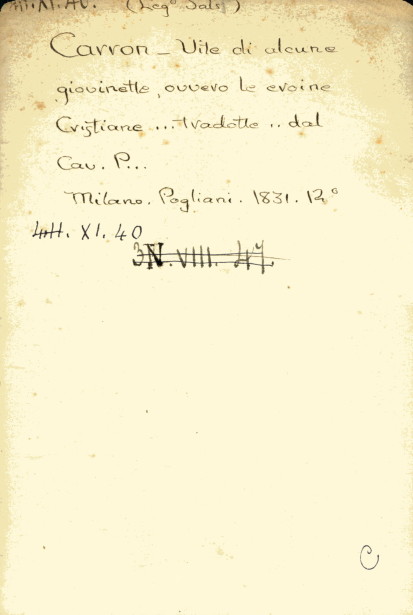 XI. 40. (Leg° Sals)
Carron - Vite di alcune
giovinette, ovvero le eroine
Cristiane ... tradotte .. dal
Cav. P...
Milano. Pogliani. 1831. 12°
4H. XI. 40
3N. VIII. 47
C